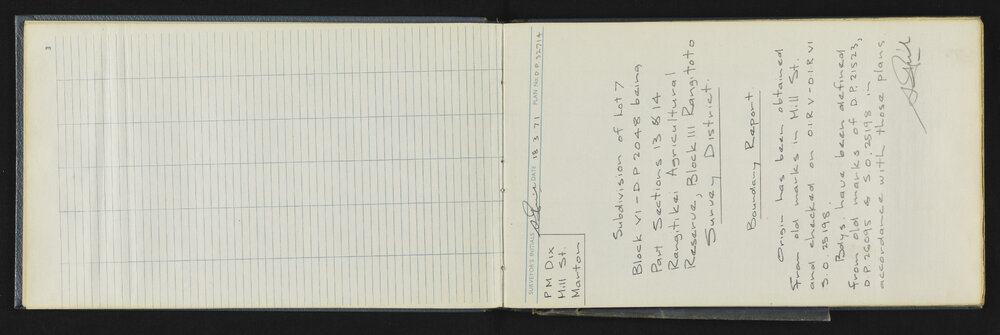 3
SURVEYOR'S INITIALS DATE 18 3 71 PLAN No. D.P. 32914
P M Dix
Hill St.
Marton
Subdivision of Lot 7
Block VI - D P 2048 being
Part Sections 13 & 14
Rangitikei Agricultural
Reserve, Block III Rangitoto
Survey District.
Boundary Report.
Origin has been obtained
from old marks in Hill St.
and checked on OIR V - OIR VI
S.O. 25198.
Bdys. have been defined
from old marks of D.P. 21523,
D.P 26095 & S.O. 25198 in
accordance with those plans.